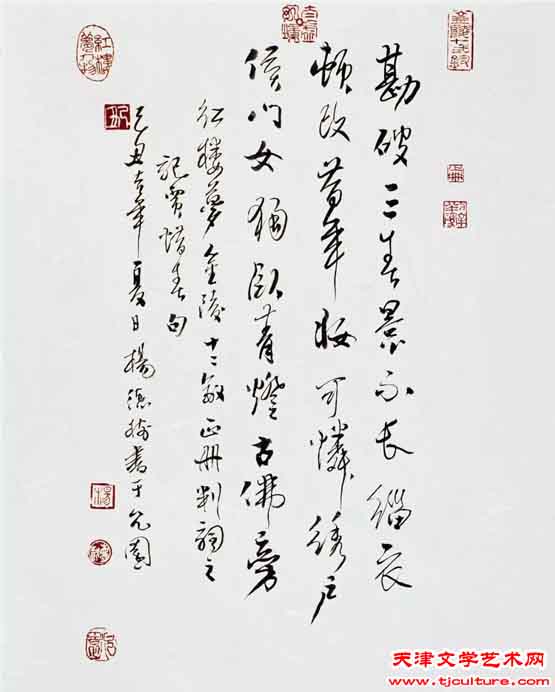 勘破三春景不长缁衣
顿改昔年妆可怜绣户
侯门女独卧青灯古佛旁
红楼梦金陵十二钗正册判词之
记贾惜春句
己丑吉年夏日杨德树书于允园
红楼梦
天津文学艺术网
www.tjculture.com